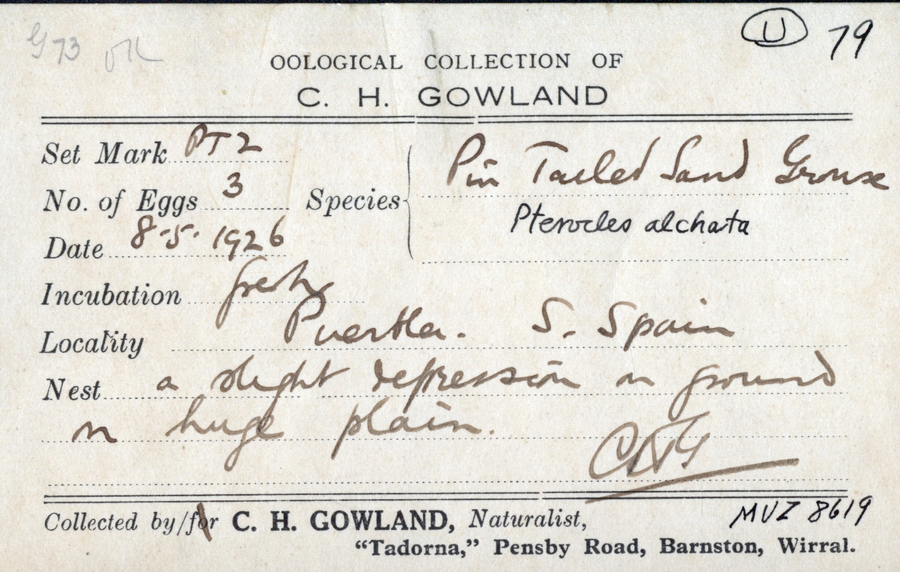 G 73 OK
U 79
OOLOGICAL COLLECTION OF
C. H. GOWLAND
Set Mark PT2
No. of Eggs 3
Species Pin Tailed Sand Grouse
Pterocles alchata
Date 8-5-1926
Incubation fresh
Locality S. Spain
Nest a slight depression in ground
in huge plain.
CHG
Collected by/for C. H. GOWLAND, Naturalist,
MVZ 8619
"Tadorna," Pensby Road, Barnston, Wirral.